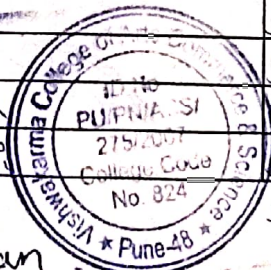 Vishwakarma College of Arts Commerce & Science
★ Pune-48 ★
ID No
PU/PN/A
275/2007
College Code
No. 824